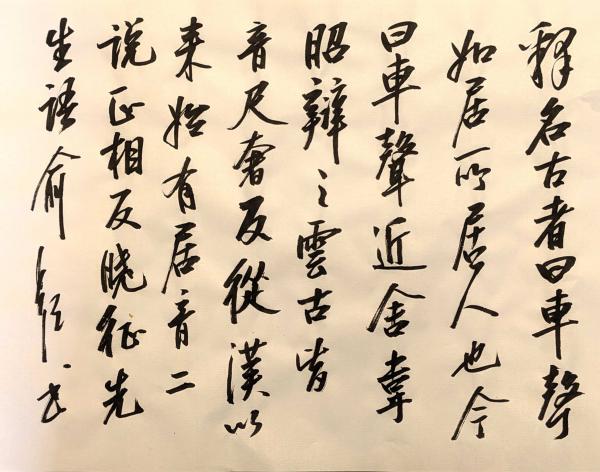 释名古者曰車聲
如居所居人也今
曰車聲近舍韋
昭辯之雲古皆
音尺奢反從漢以
来始有居音二
说正相反晓征先
生語俞书